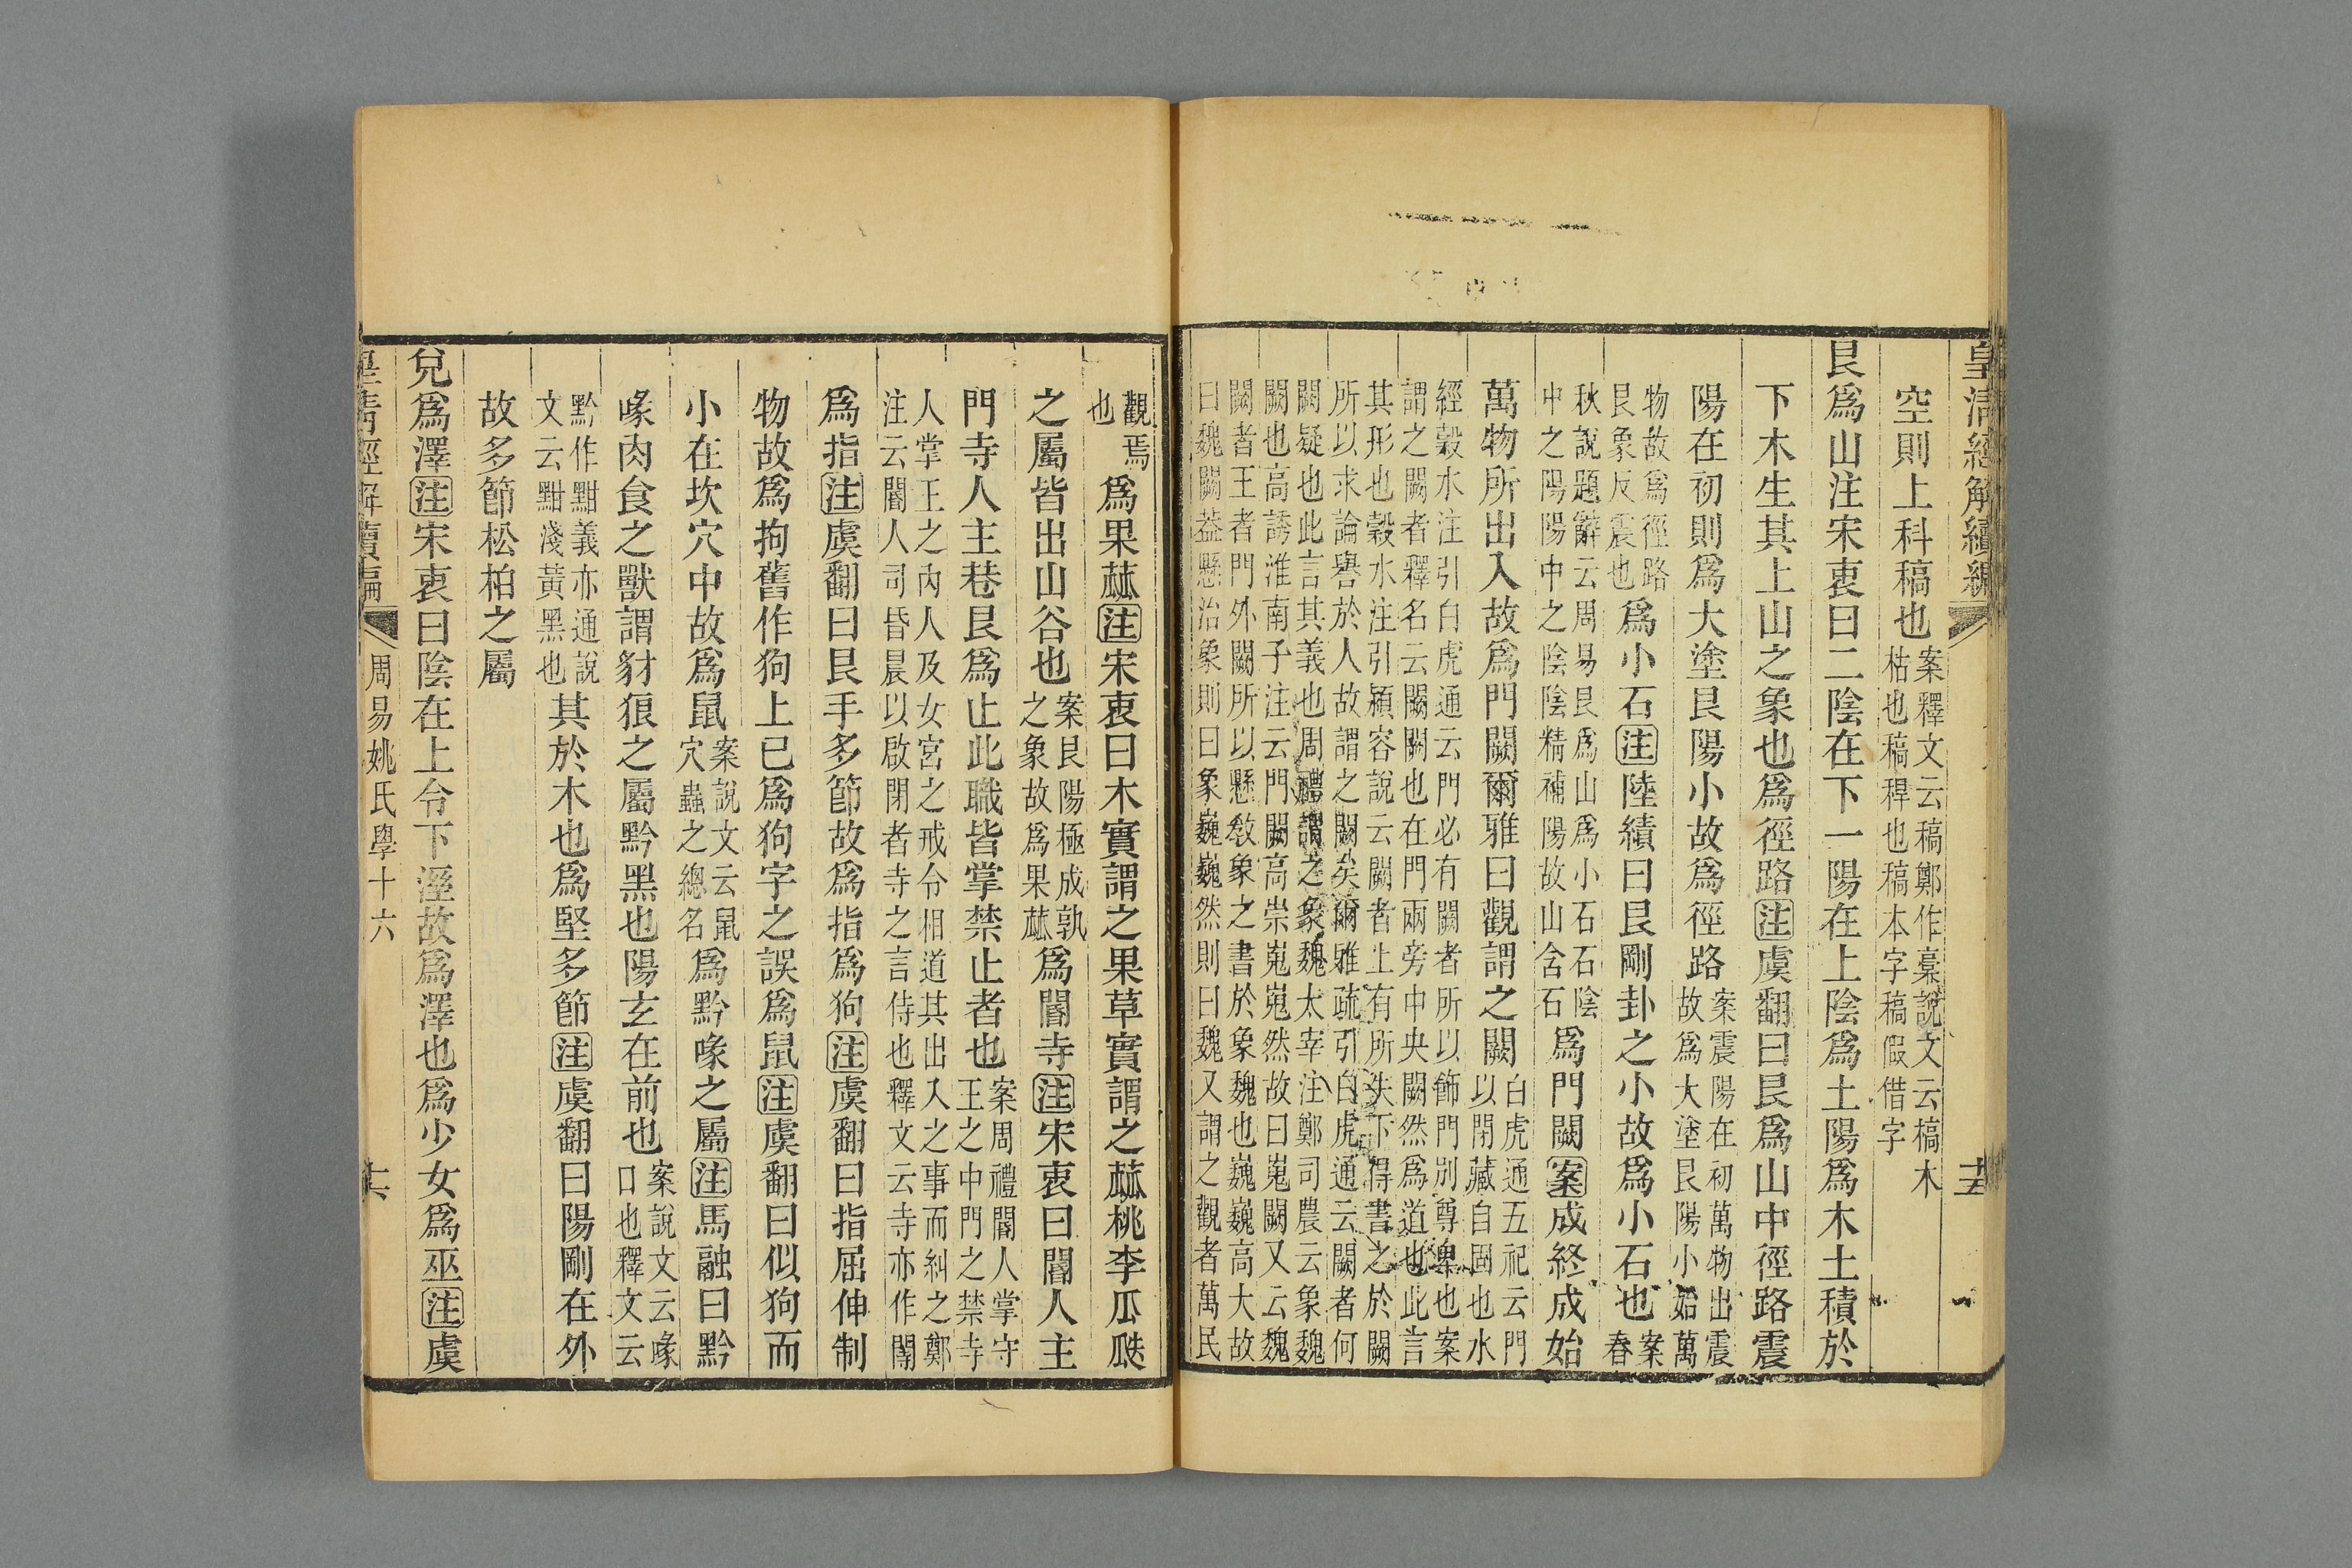 皇清經解續編
十五
空則上科稿也案釋文云稿鄭作槀說文云槁木
枯也稿稈也稿本字稿假借字
艮爲山注宋衷曰二陰在下一陽在上陰爲土陽爲木土積於
下木生其上山之象也爲徑路注虞翻曰艮爲山中徑路震
陽在初則爲大塗艮陽小故爲徑路案震陽在初萬物出震
故爲大塗艮陽小始萬
物故爲徑路
艮象反震也爲小石注陸績曰艮剛卦之小故爲小石也案
春
秋說題辭云周易艮爲山爲小石石陰
中之陽陽中之陰陰精補陽故山含石爲門闕案成終成始
萬物所出入故爲門闕爾雅曰觀謂之闕白虎通五祀云門
以閉藏自固也水
經穀水注引白虎通云門必有闕者所以飾門別尊卑也案
謂之闕者釋名云闕闕也在門兩旁中央闕然爲道也此言
其形也穀水注引潁容說云闕者上有所失下得書之於闕
所以求論譽於人故謂之闕矣爾雅疏引白虎通云闕者何
闕疑也此言其義也周禮謂之象魏太宰注鄭司農云象魏
闕也高誘淮南子注云門闕高崇嵬嵬然故曰嵬闕又云魏
闕者王者門外闕所以懸敎象之書於象魏也巍巍高大故
曰魏闕葢懸治象則曰象巍巍然則曰魏又謂之觀者萬民
觀焉
也爲果蓏注宋衷曰木實謂之果草實謂之蓏桃李瓜瓞
之屬皆出山谷也案艮陽極成孰
之象故爲果蓏爲閽寺注宋衷曰閽人主
門寺人主巷艮爲止此職皆掌禁止者也案周禮閽人掌守
王之中門之禁寺
人掌王之內人及女宮之戒令相道其出入之事而糾之鄭
注云閽人司昏晨以啟閉者寺之言侍也釋文云寺亦作閽
爲指注虞翻曰艮手多節故爲指爲狗注虞翻曰指屈伸制
物故爲拘舊作狗上已爲狗字之誤爲鼠注虞翻曰似狗而
小在坎穴中故爲鼠案說文云鼠
穴蟲之總名爲黔喙之屬注馬融曰黔
喙肉食之獸謂豺狼之屬黔黑也陽玄在前也案說文云喙
口也釋文云
黔作黚義亦通說
文云黚淺黃黑也其於木也爲堅多節注虞翻曰陽剛在外
故多節松柏之屬
兌爲澤注宋衷曰陰在上令下溼故爲澤也爲少女爲巫注虞
皇清經解續編
周易姚氏學十六
十六